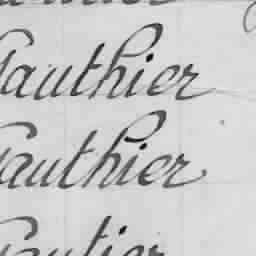 Gauthier
Gauthier
Gautier